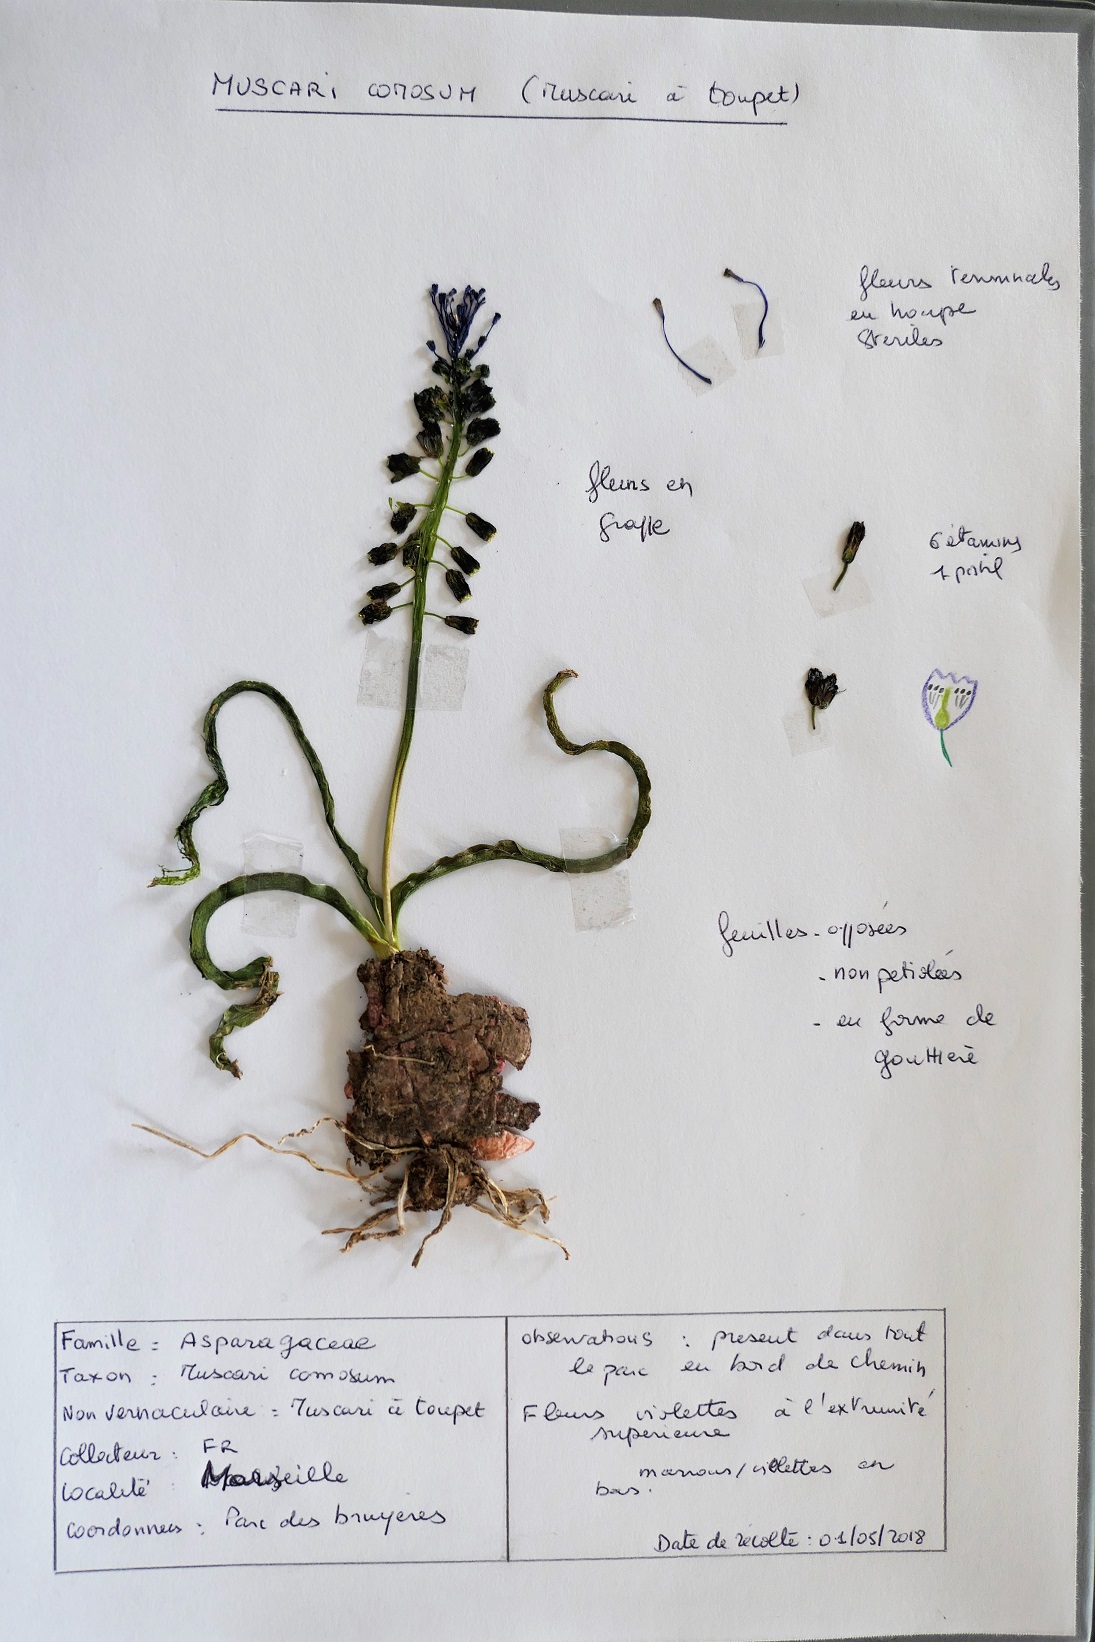 MUSCARI COMOSUM (Muscari à toupet)
fleurs terminales
en houpe
Steriles
fleurs en
grappe
6 étamines
1 pistil
feuilles - opposées
- non petiolées
- en forme de
gouttière
Famille : Asparagaceae
Taxon : Muscari comosum
Non vernaculaire : Muscari à toupet
Collecteur : FR
Localité : Marseille
Coordonnees : Parc des bruyères
Observations : present dans tout
le parc en bord de chemin
Fleurs violettes à l'extrumité
superieure
marrons/violettes en
bas.
Date de récolte : 01/05/2018